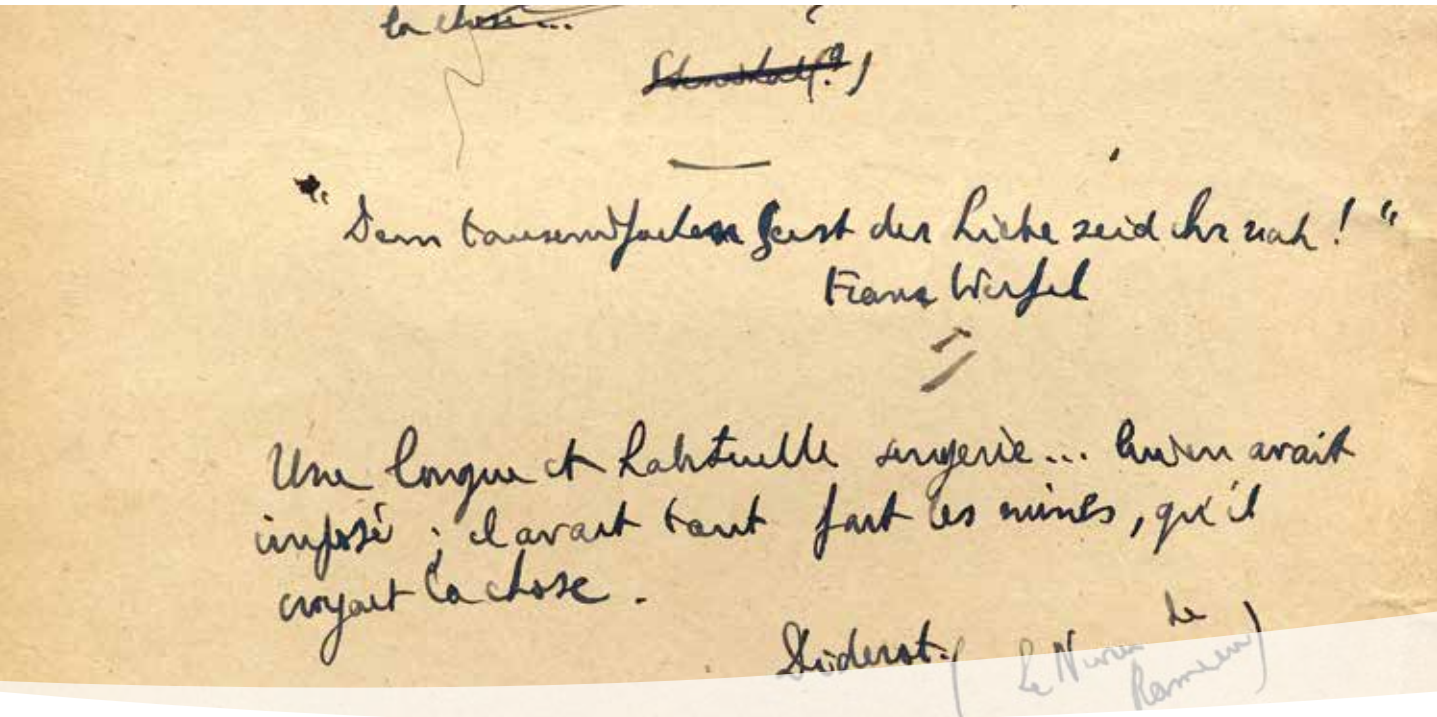 la chose...
"Dem tausendfachen Geist der Liebe seid ihr nah!"
Franz Werfel
Une longue et habituelle singerie... lui en avait
imposé ; il avait tant fait les mines, qu'il
croyait la chose.
Diderot. (Le Neveu de
Rameau)